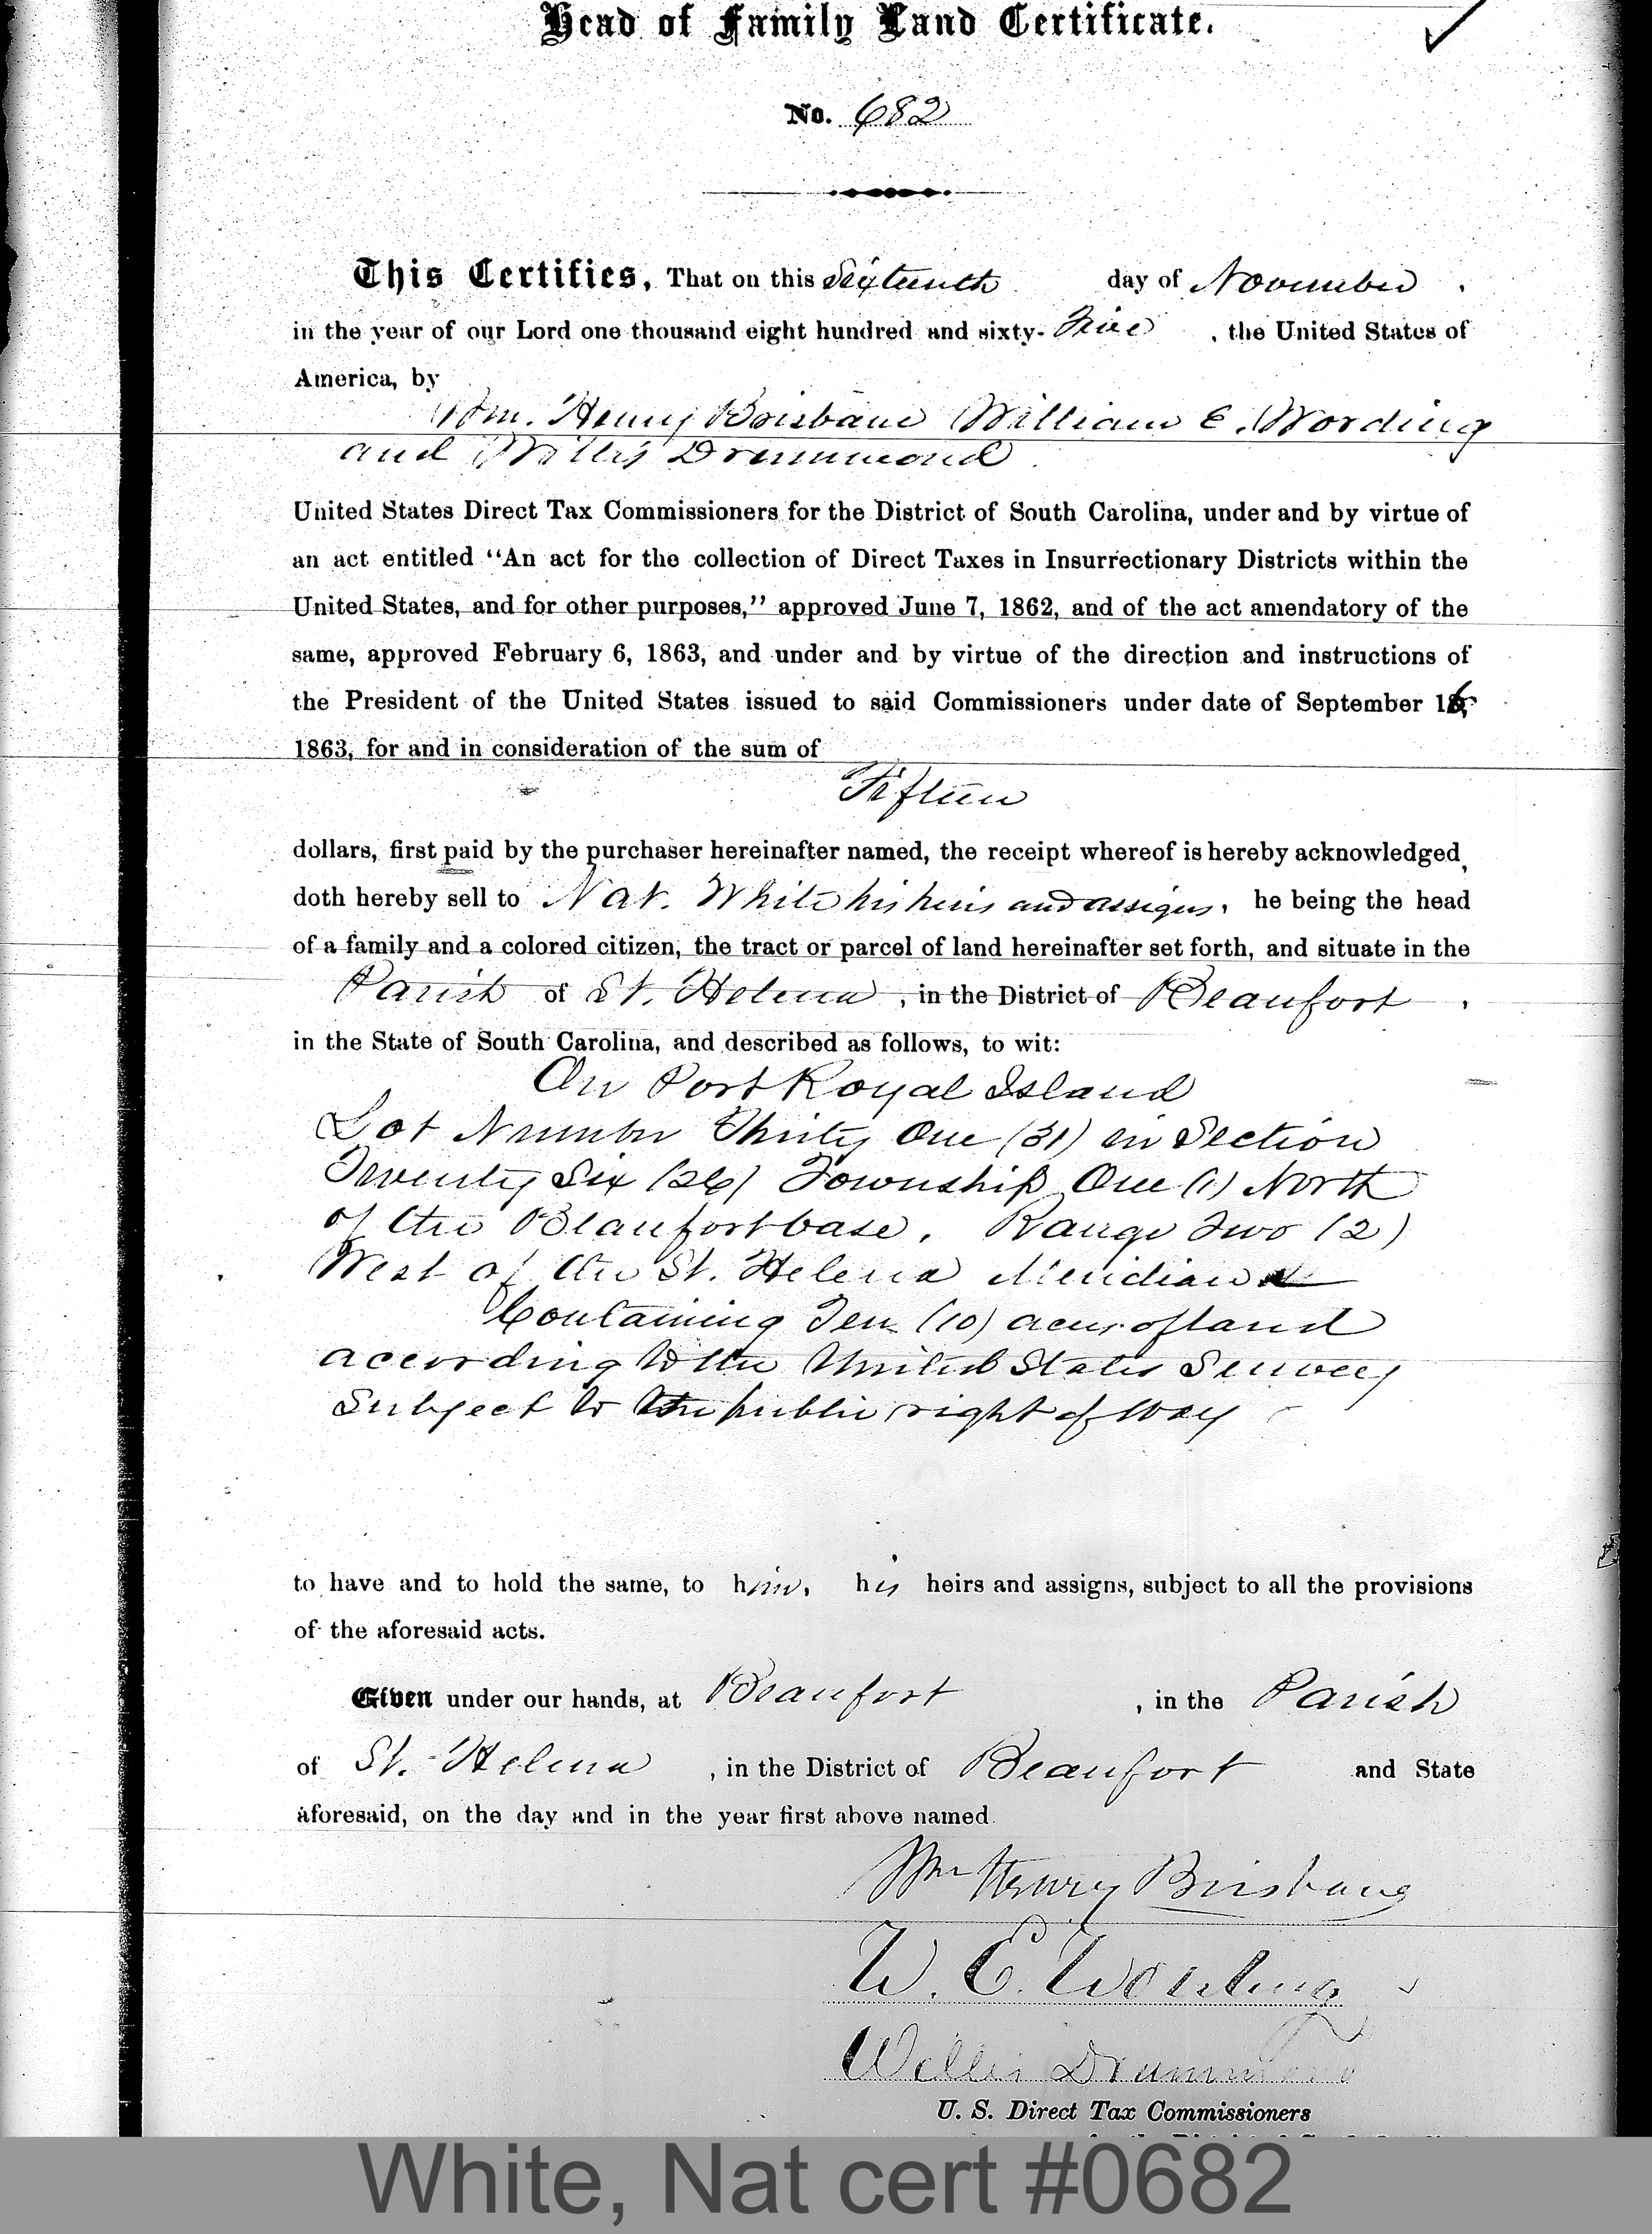 Head of Family Land Certificate.
No. 682
This Certifies, That on this Sixteenth day of November
in the year of our Lord one thousand eight hundred and sixty-Five, the United States of
America, by
Wm. Henry Brisbane William E. Wording
and Willis Drummond
United States Direct Tax Commissioners for the District of South Carolina, under and by virtue of
an act entitled "An act for the collection of Direct Taxes in Insurrectionary Districts within the
United States, and for other purposes," approved June 7, 1862, and of the act amendatory of the
same, approved February 6, 1863, and under and by virtue of the direction and instructions of
the President of the United States issued to said Commissioners under date of September 16,
1863, for and in consideration of the sum of
Fifteen
dollars, first paid by the purchaser hereinafter named, the receipt whereof is hereby acknowledged,
doth hereby sell to Nat. White his heirs and assigns, he being the head
of a family and a colored citizen, the tract or parcel of land hereinafter set forth, and situate in the
Parish of St. Helena, in the District of Beaufort,
in the State of South Carolina, and described as follows, to wit:
On Port Royal Island
Lot Number Thirty One (31) in Section
Twenty Six (26) Township One (1) North
of the Beaufort base, Range Two (2)
West of the St. Helena Meridian
Containing Ten (10) acres of land
according to the United States Survey
Subject to the public right of Way
to have and to hold the same, to him, his heirs and assigns, subject to all the provisions
of the aforesaid acts.
Given under our hands, at Beaufort, in the Parish
of St. Helena, in the District of Beaufort and State
aforesaid, on the day and in the year first above named.
Wm Henry Brisbane
W. E. Wording
Willis Drummond
U. S. Direct Tax Commissioners
White, Nat cert #0682